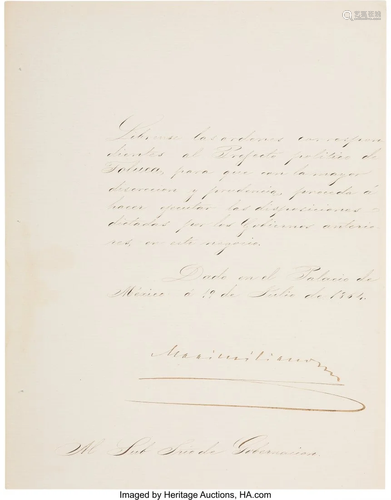 Líbrense las ordenes correspon
dientes al Prefecto político de
Toluca, para que con la mayor
discrecion y prudencia, proceda á
hacer ejecutar las disposiciones
dictadas por los Gobiernos anterio
res, en este negocio.
Dado en el Palacio de
México á 19 de Julio de 1864.
Maximiliano
Al Sub Srio de Gobernacion
Imaged by Heritage Auctions, HA.com